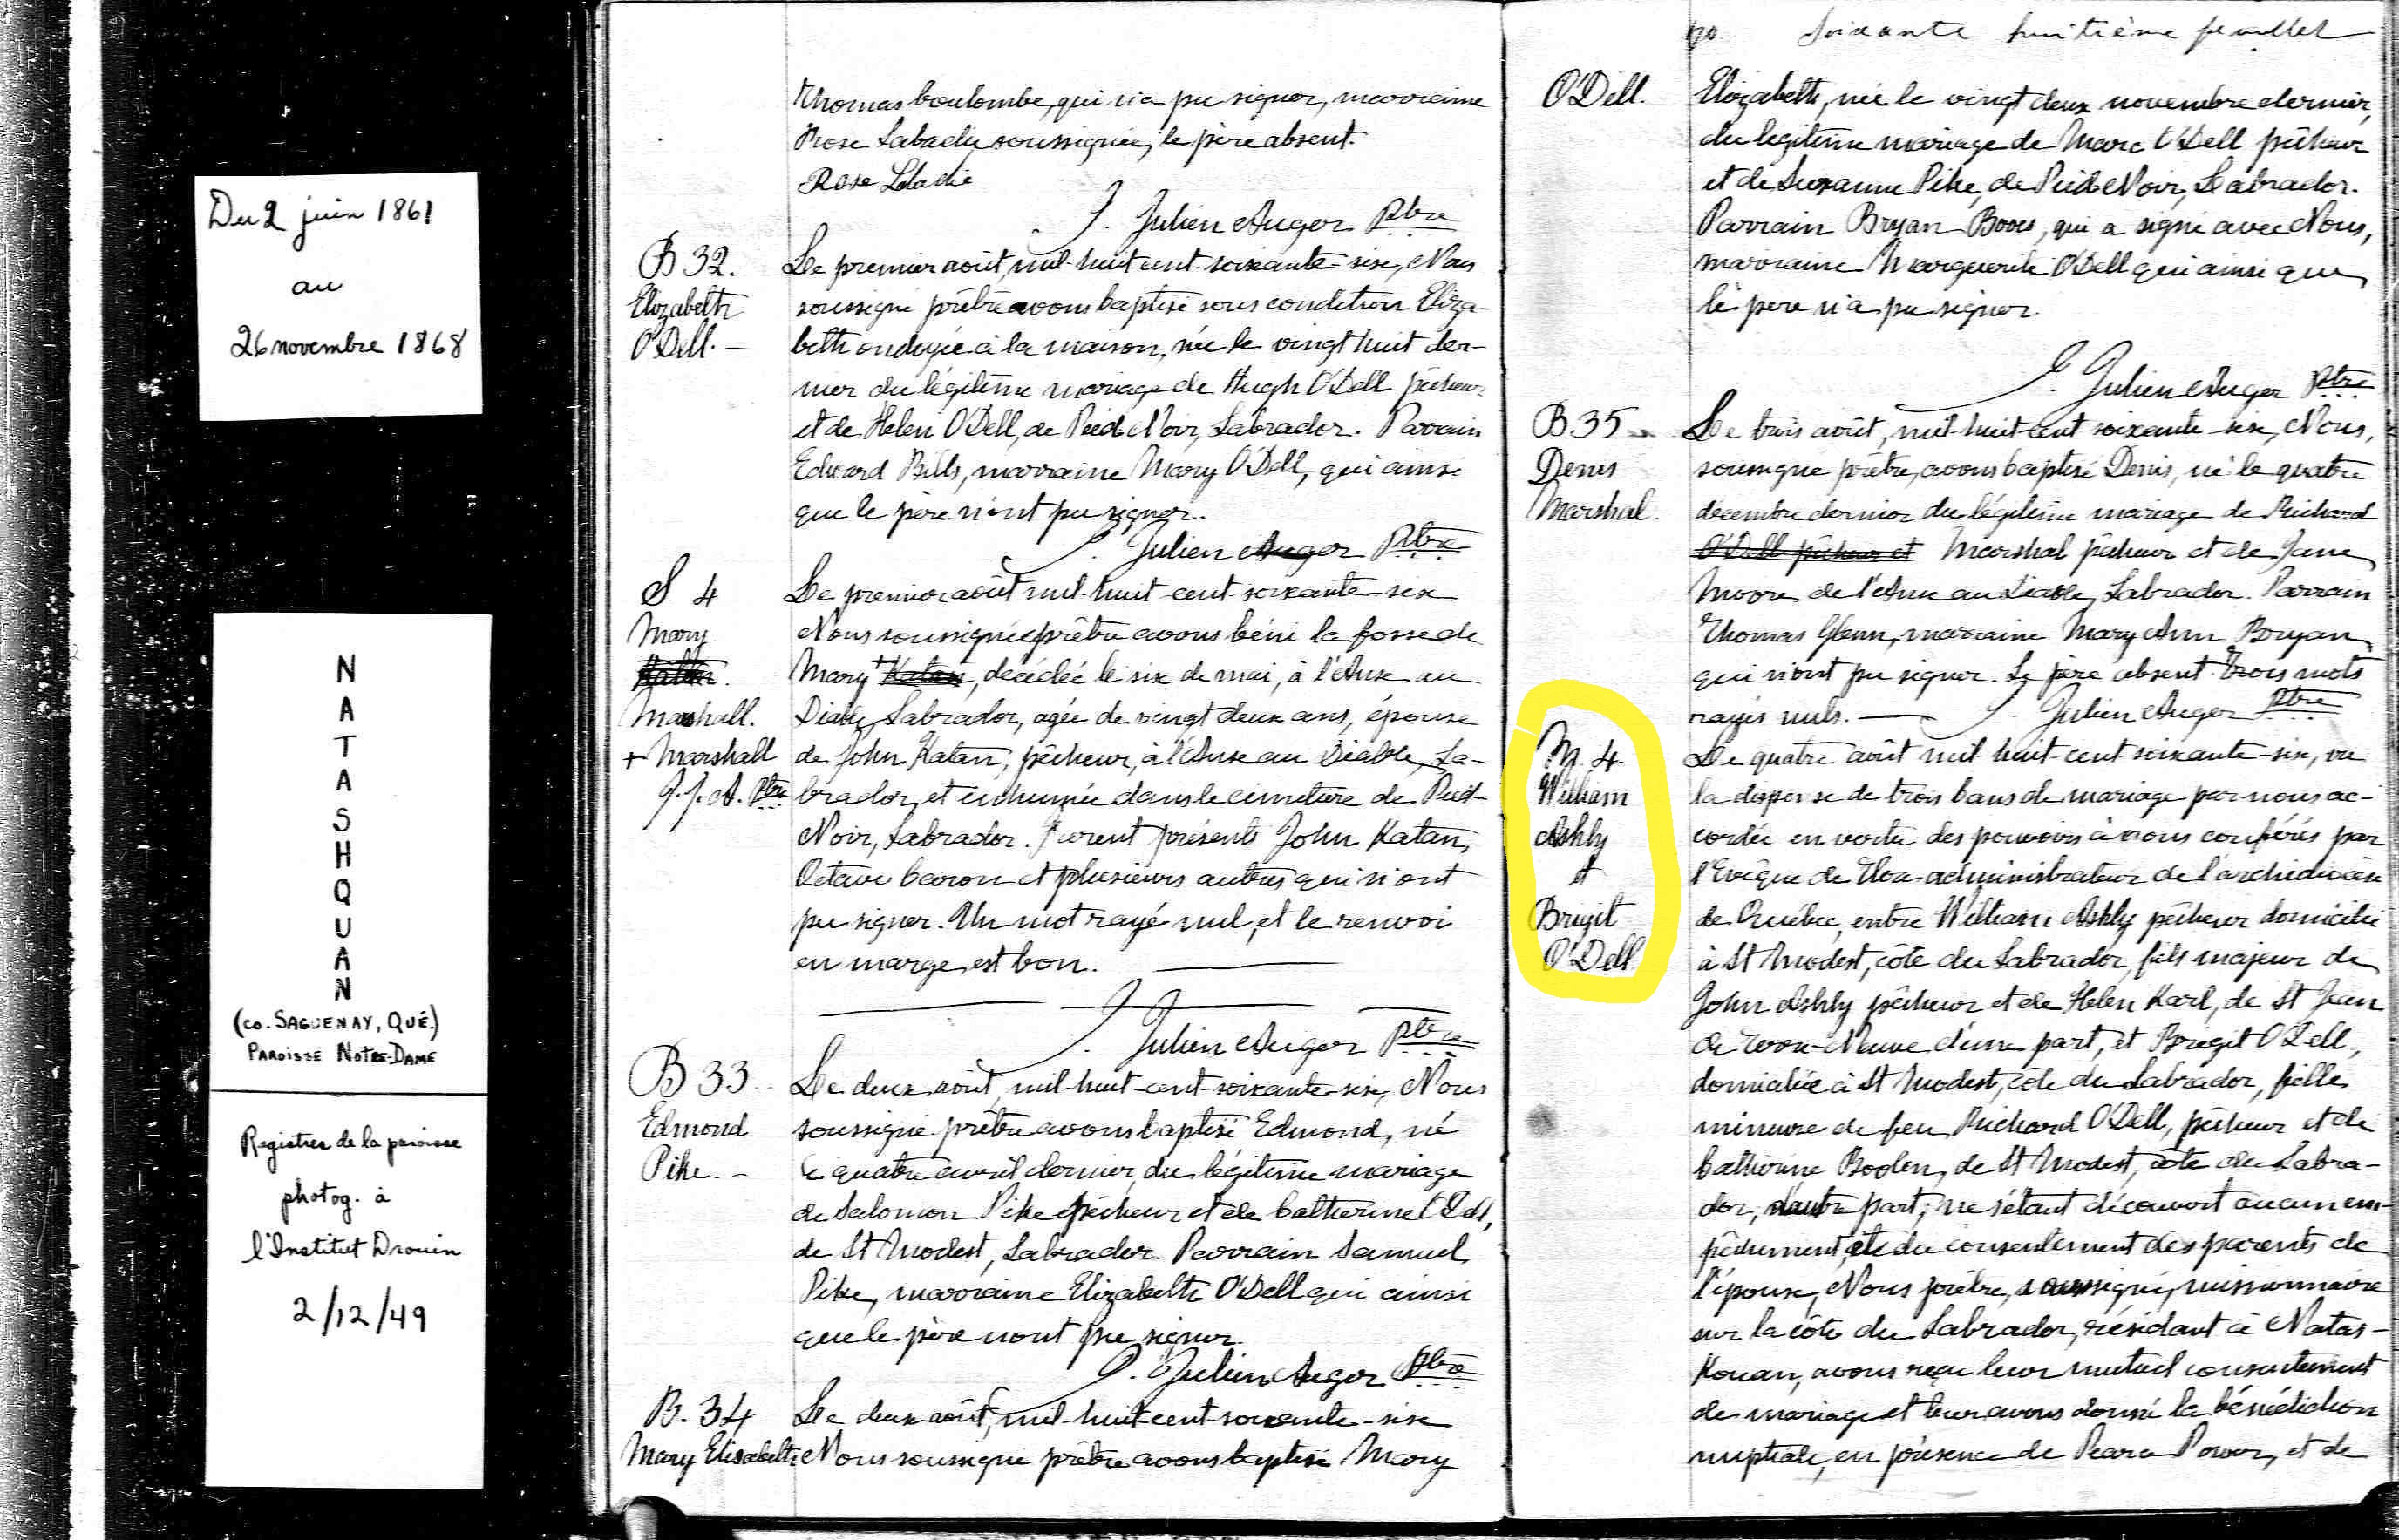 Du 2 juin 1861
au
26 novembre 1868
N
A
T
A
S
H
Q
U
A
N
(CO. SAGUENAY, QUÉ.)
PAROISSE NOTRE-DAME
Registres de la paroisse
photog. à
l'Institut Drouin
2/12/49
Thomas Coulombe, qui n'a pu signer, marraine
Rose Labadie soussignée, le père absent.
Rose Labadie
J. Julien Auger Ptre
B 32.
Elizabeth
O'Dell. -
Le premier août, mil-huit cent-soixante-six, Nous
soussigné prêtre avons baptisé sous condition Eliza-
beth ondoyée à la maison, née le vingt huit der-
nier du légitime mariage de Hugh O'Dell pêcheur
et de Helen O'Dell, de Pied Noir, Labrador. Parrain
Edward Bills, marraine Mary O'Dell, qui ainsi
que le père n'ont pu signer.
J. Julien Auger Ptre
S 4
Mary
Katan.
Marshall.
+ Marshall
J. J. A. Ptre
Le premier août mil-huit-cent-soixante-six
Nous soussigné prêtre avons béni la fosse de
Mary + Katan, décédée le six de mai, à l'Anse au
Diable, Labrador, agée de vingt deux ans, épouse
de John Katan, pêcheur, à l'Anse au Diable, La-
brador, et inhumée dans le cimetière de Pied-
Noir, Labrador. Furent présents John Katan,
Octave Caron et plusieurs autres qui n'ont
pu signer. Un mot rayé nul, et le renvoi
en marge est bon.
J. Julien Auger Ptre
B 33
Edmond
Pike. -
Le deux août, mil-huit-cent-soixante-six, Nous
soussigné prêtre avons baptisé Edmond, né
le quatre avril dernier, du légitime mariage
de Salomon Pike pêcheur et de Catherine O'Dell,
de St Modest, Labrador. Parrain Samuel
Pike, marraine Elizabeth O'Dell qui ainsi
que le père n'ont pu signer.
J. Julien Auger Ptre
B. 34
Mary Elisabeth
Le deux août, mil-huit-cent-soixante-six
Nous soussigné prêtre avons baptisé Mary
soixante huitième feuillet
O'Dell.
Elizabeth, née le vingt deux novembre dernier,
du légitime mariage de Marc O'Dell pêcheur
et de Suzanne Pike, de Pied Noir, Labrador.
Parrain Bryan, qui a signé avec Nous,
marraine Marguerite O'Dell qui ainsi que
le père n'a pu signer.
J. Julien Auger Ptre
B 35
Denis
Marshal.
Le trois août, mil-huit-cent soixante-six, Nous,
soussigné prêtre, avons baptisé Denis, né le quatre
décembre dernier du légitime mariage de Richard
O'Dell pêcheur et Marshal pêcheur et de Jane
Moore de l'Anse au Diable, Labrador. Parrain
Thomas Glenn, marraine Mary Ann Bryan
qui n'ont pu signer. Le père absent. Trois mots
rayés nuls. J. Julien Auger Ptre
M. 4.
William
Ashly
et
Brigit
O'Dell
Le quatre août mil huit-cent soixante-six, vu
la dispense de trois bans de mariage par nous ac-
cordée en vertu des pouvoirs à nous conférés par
l'Evêque de Tloa administrateur de l'archidiocèse
de Québec, entre William Ashly pêcheur domicilié
à St Modest, côte du Labrador, fils majeur de
John Ashly pêcheur et de Helen Karl, de St Jean
de Terre-Neuve d'une part, et Brigit O'Dell,
domiciliée à St Modest, côte du Labrador, fille
mineure de feu Richard O'Dell, pêcheur et de
Catherine Boolen, de St Modest, côte du Labra-
dor, d'autre part; ne s'étant découvert aucun em-
pêchement, et du consentement des parents de
l'épouse, Nous prêtre, soussigné, missionnaire
sur la côte du Labrador, résidant à Natas-
kouan, avons reçu leur mutuel consentement
de mariage et leur avons donné la bénédiction
nuptiale, en présence de Power, et de